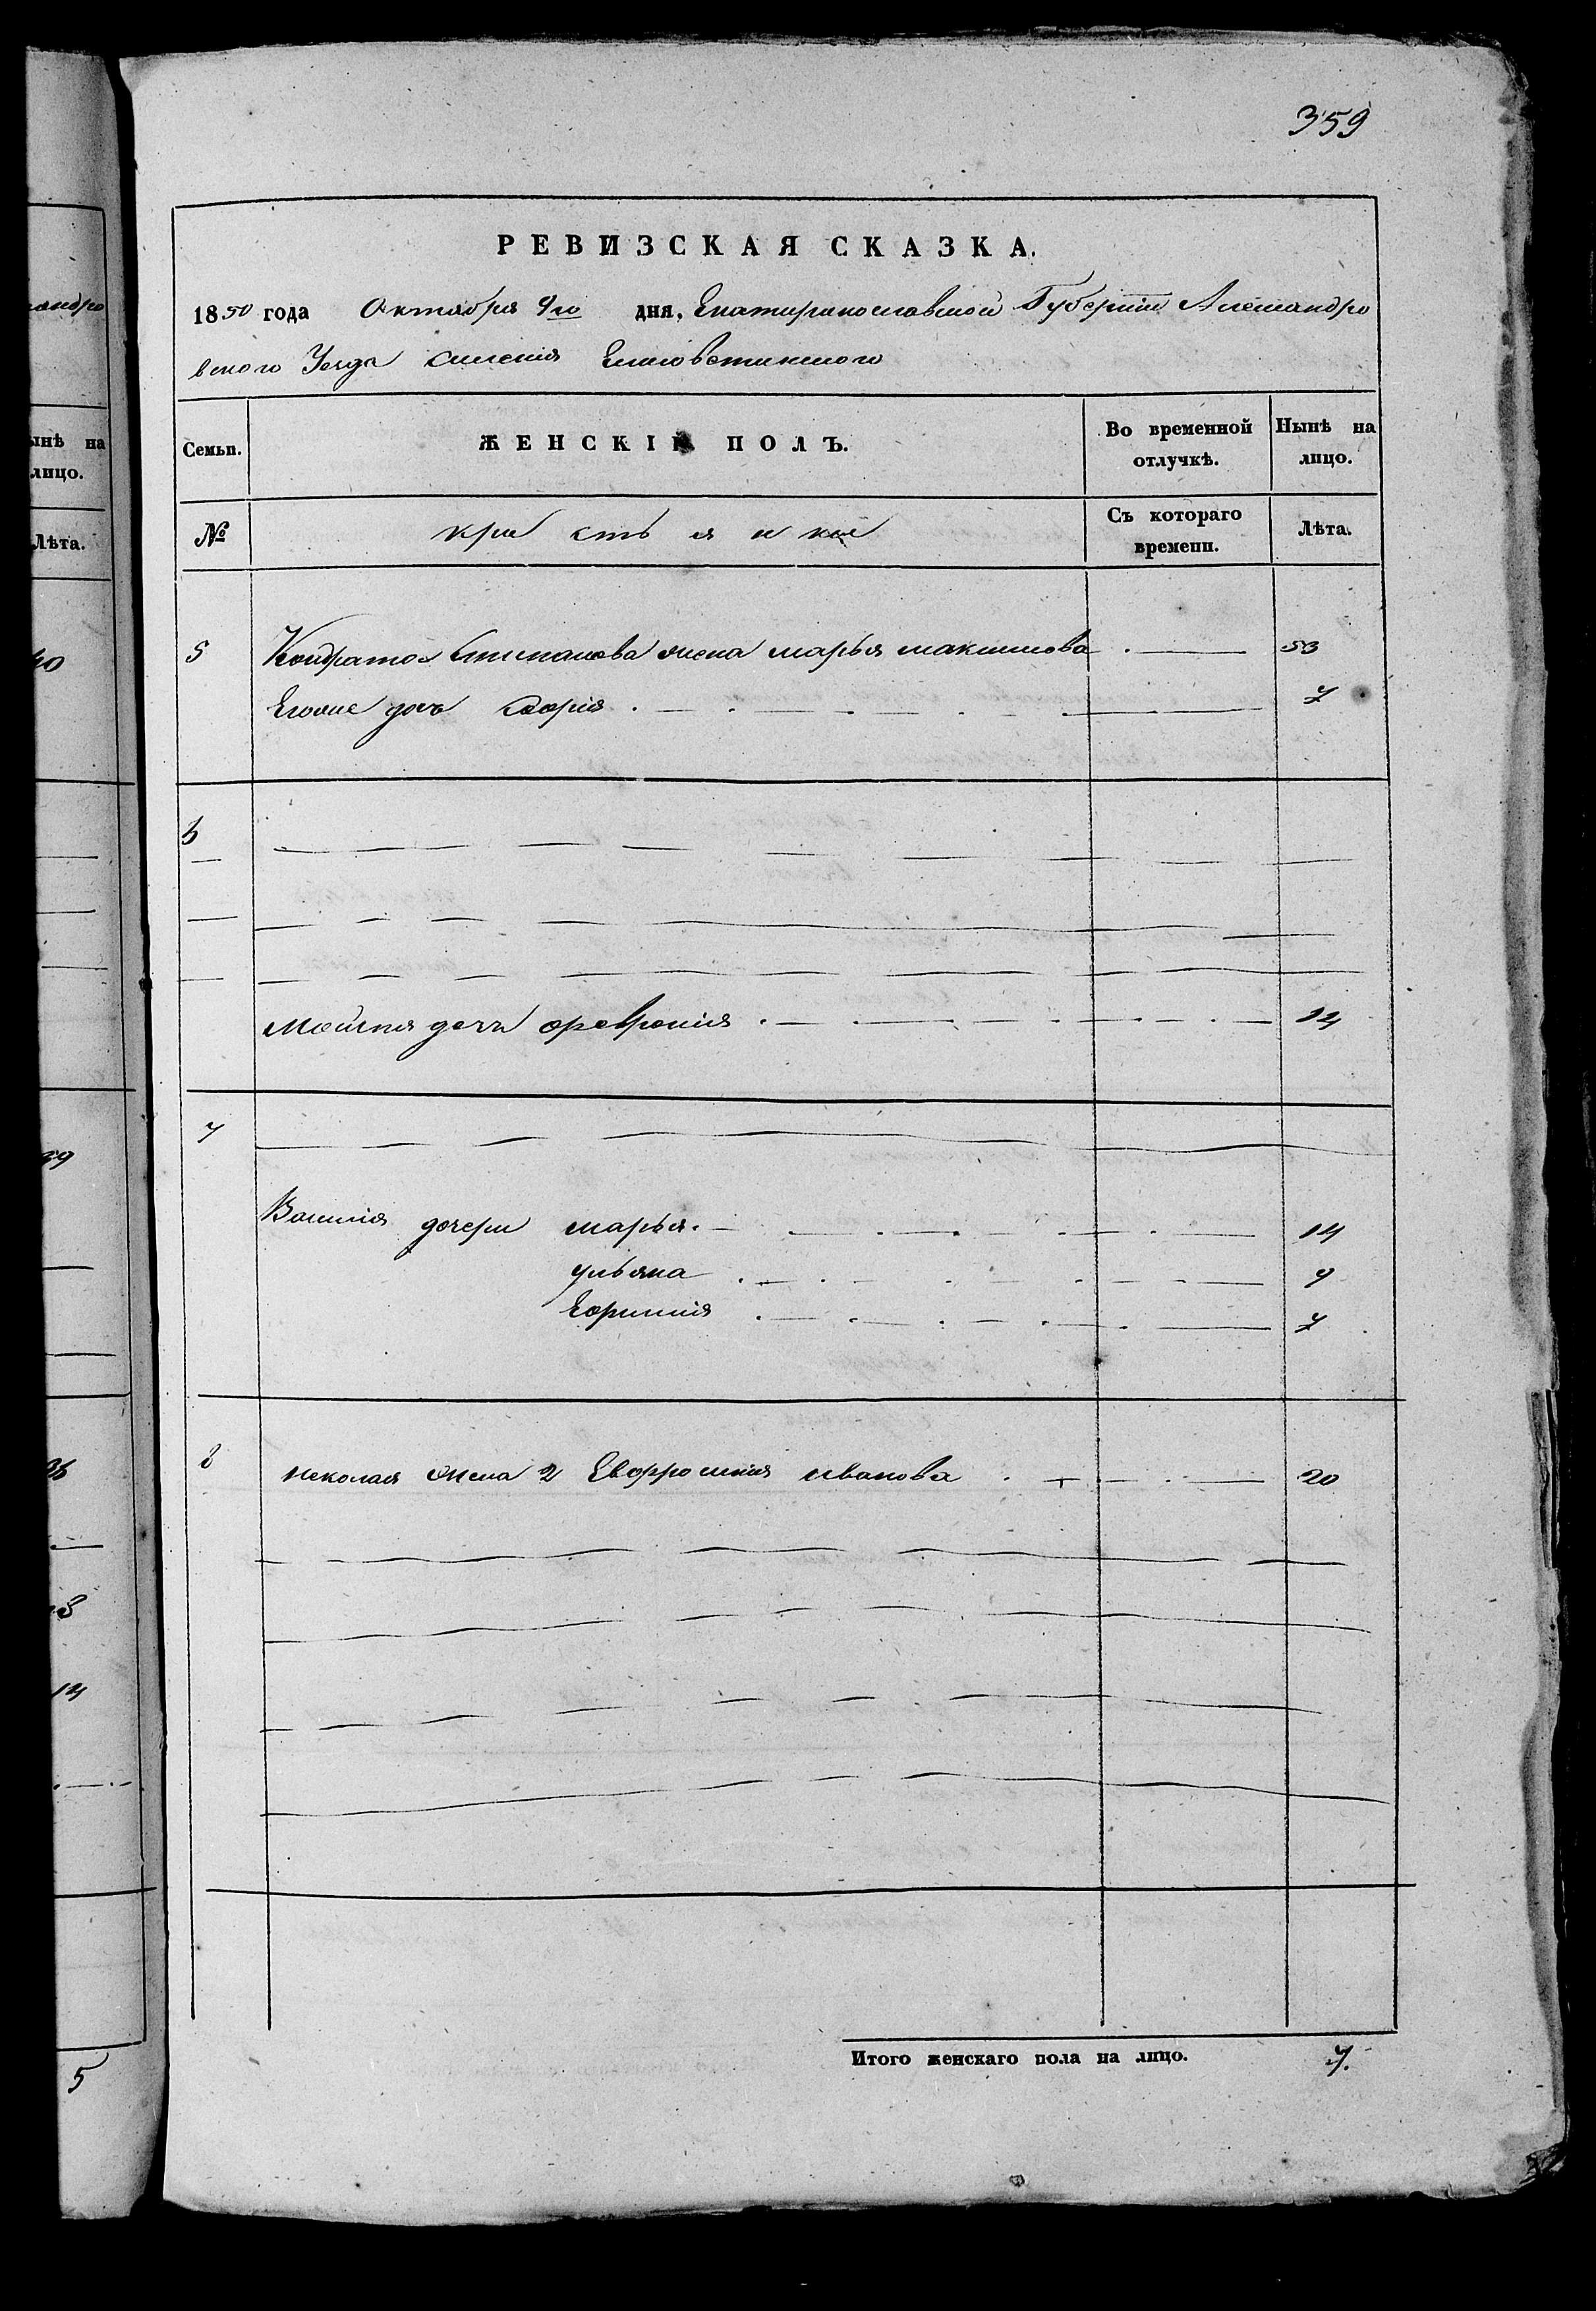 359
РЕВИЗСКАЯ СКАЗКА.
1850 года Октября 9го дня, Екатиринославской Губернiи Александро
вского Уезда Силенiя Елисоветинского
Семьи. ЖЕНСКIЙ ПОЛЪ. Во временной отлучкѣ. Нынѣ на лицо.
№ кристьянкие Съ котораго времени. Лѣта.
5 Кондрата Степанова жена марья макшимова 53
Егоже дочь Дарiя 7
6
Мойсия дочь февронiя 14
7
Василiя дочери марья 14
ульяна 9
Ефимия 7
8 николая жена 2 Евфросинiя иванова 20
Итого женскаго пола на лицо. 7.
андро
ынѣ на
лицо.
Лѣта.
40
39
36
14
5